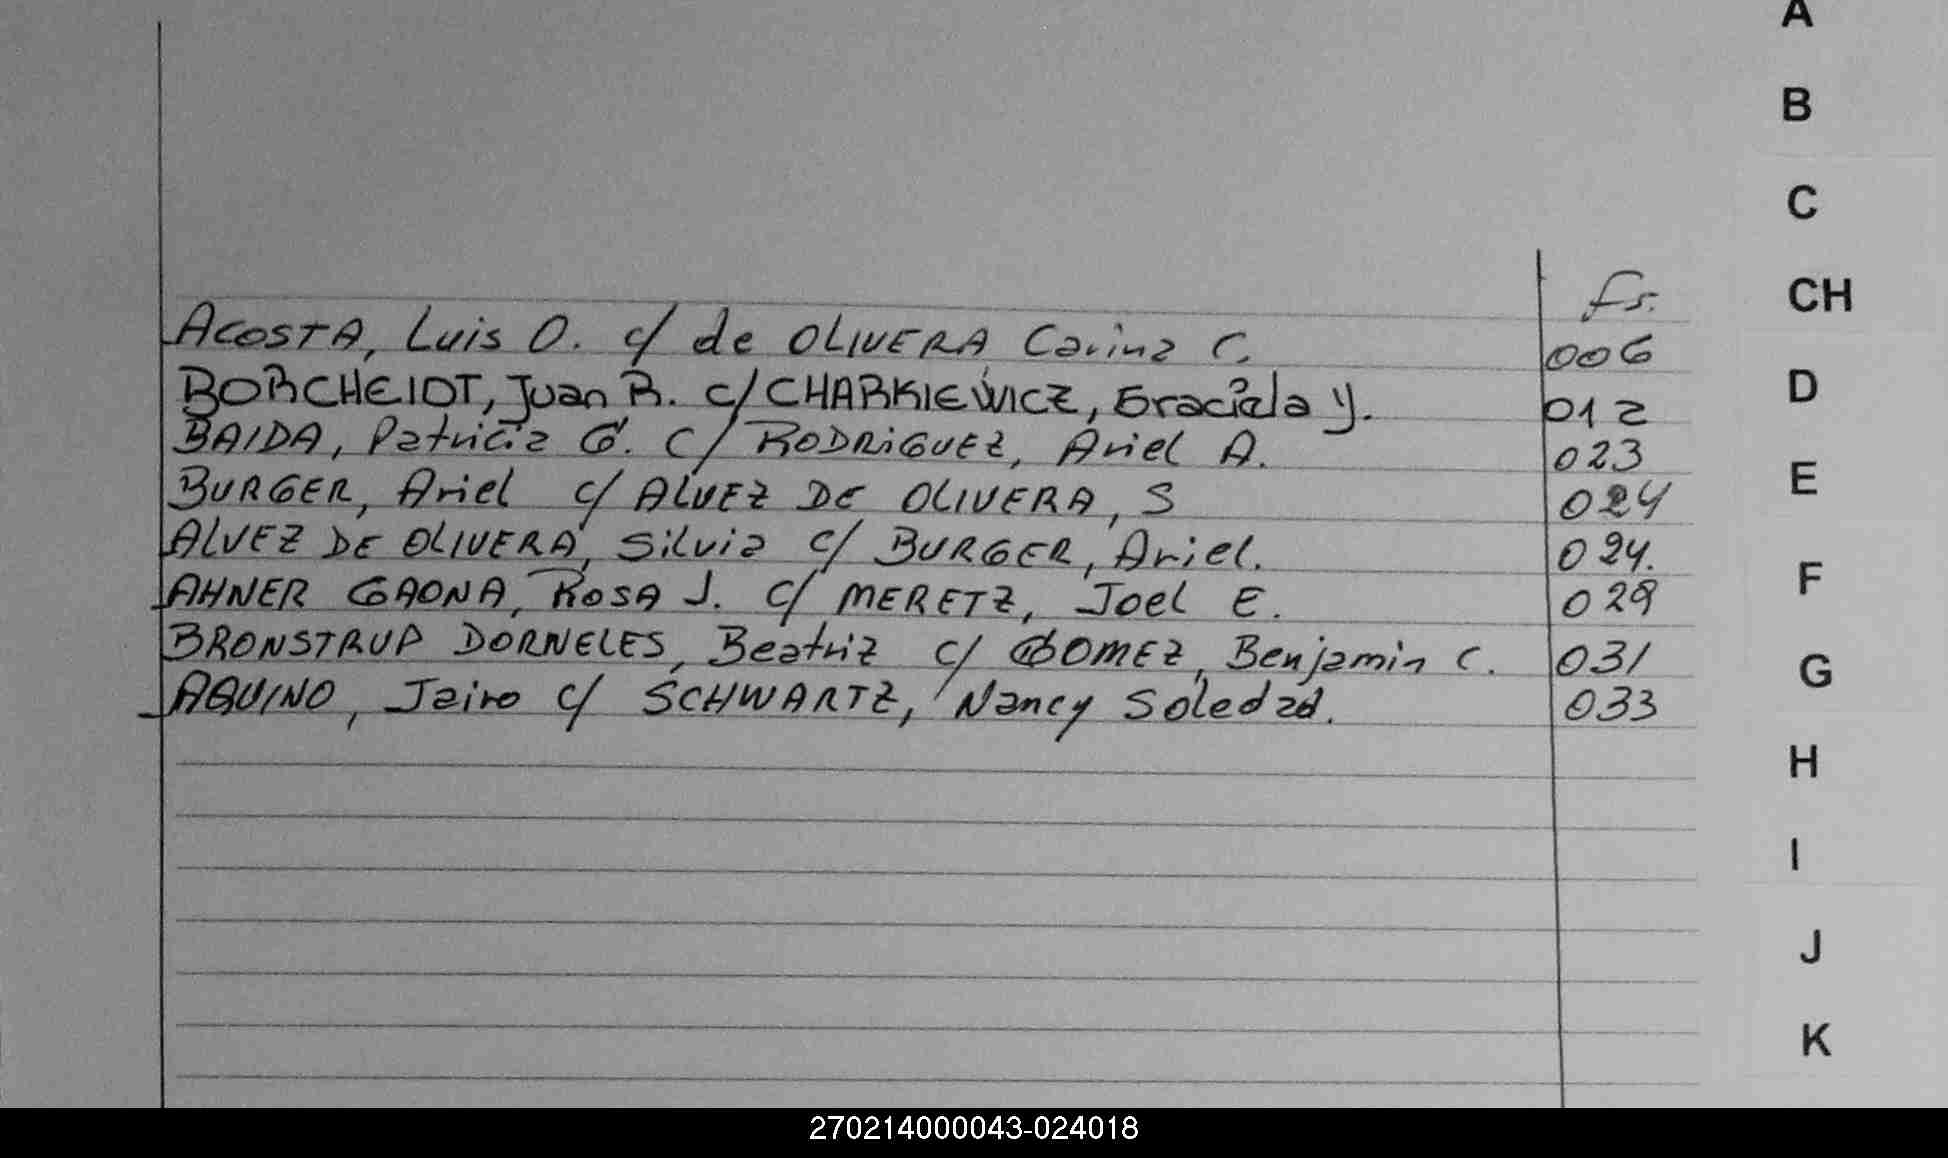 A
B
C
CH
D
E
F
G
H
I
J
K
fs.
ACOSTA, Luis O. c/ de OLIVERA Carina C. 006
BORCHEIDT, Juan R. c/ CHARKIEWICZ, Graciela Y. 012
BAIDA, Patricia G. c/ RODRiGUEZ, Ariel A. 023
BURGER, Ariel c/ ALVEZ DE OLIVERA, S 024
ALVEZ DE OLIVERA, Silvia c/ BURGER, Ariel. 024.
AHNER GAONA, ROSA J. c/ MERETZ, Joel E. 029
BRONSTRUP DORNELES, Beatriz c/ GOMEZ, Benjamin C. 031
AQUINO, Jairo c/ SCHWARTZ, Nancy Soledad. 033
270214000043-024018